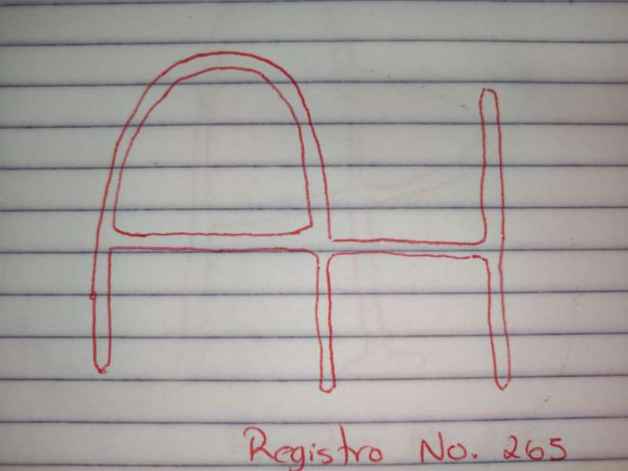 AH
Registro No. 265